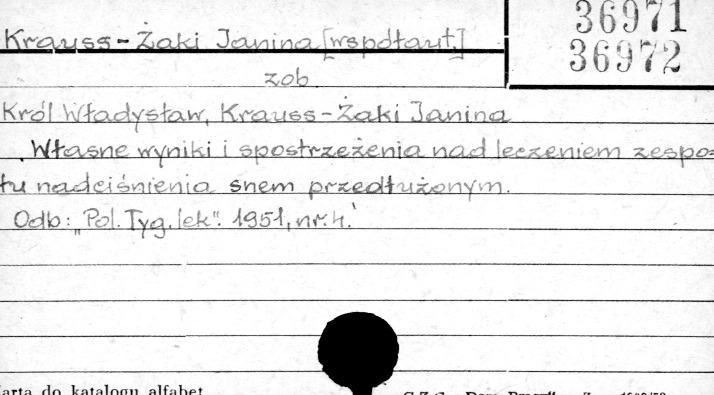 36971
Krauss-Żaki Janina [współaut.]
36972
zob.
Król Władysław, Krauss-Żaki Janina
Własne wyniki i spostrzeżenia nad leczeniem zespo=
łu nadciśnienia snem przedłużonym.
Odb: „Pol. Tyg. lek". 1951, nr. 4.
arta do katalogu alfabet